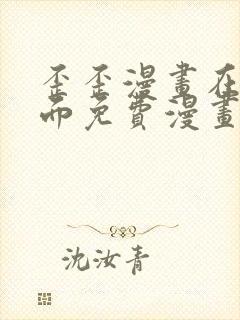 歪歪漫畫在
面免費漫畫
沈汝青